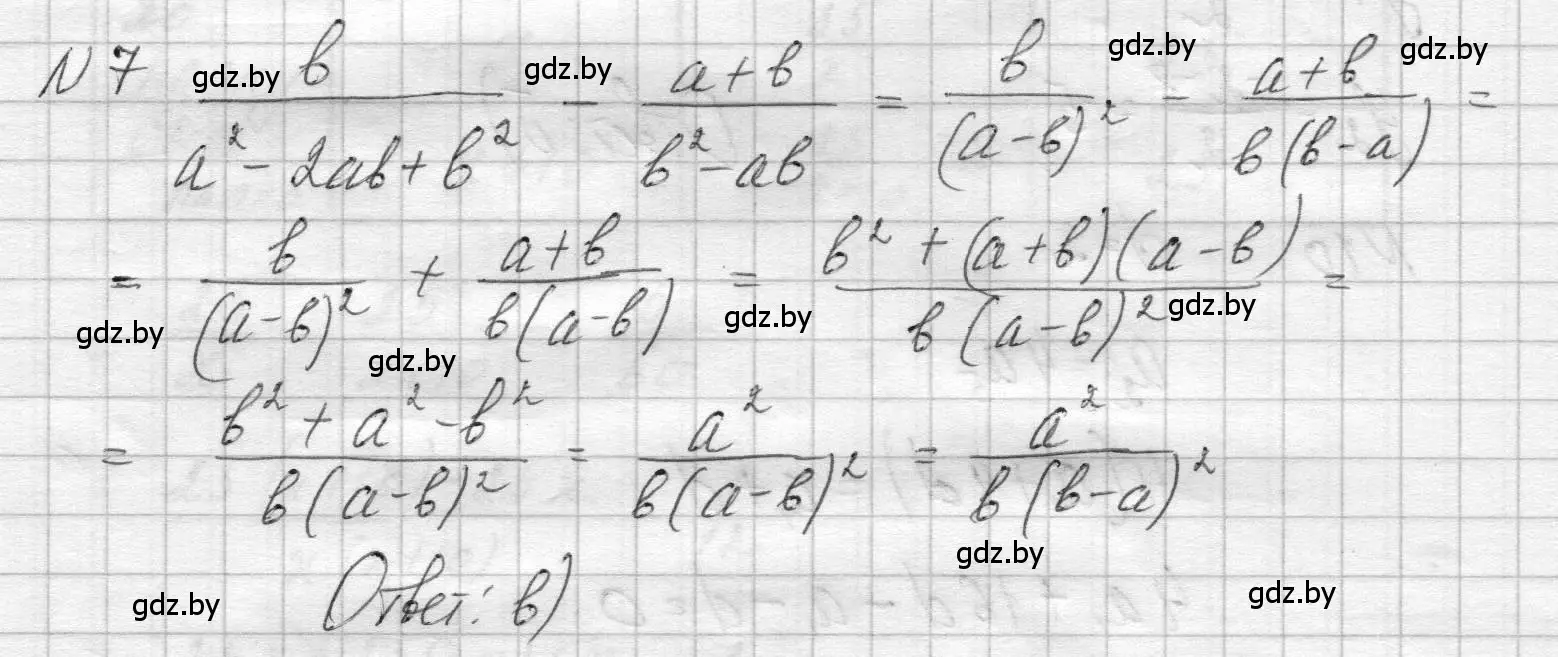 N 7 b/(a² - 2ab + b²) - (a + b)/(b² - ab) = b/(a - b)² - (a + b)/(b(b - a)) =
= b/(a - b)² + (a + b)/(b(a - b)) = (b² + (a + b)(a - b))/(b(a - b)²) =
= (b² + a² - b²)/(b(a - b)²) = a²/(b(a - b)²) = a²/(b(b - a)²)
Ответ: в)
gdz.by
gdz.by
gdz.by
gdz.by
gdz.by
gdz.by
gdz.by
gdz.by
gdz.by
gdz.by
gdz.by